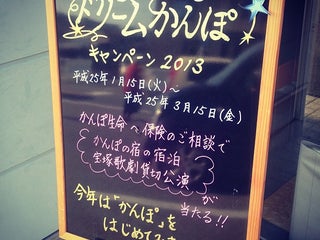 ドリームかんぽ
キャンペーン2013
平成25年1月15日(火)～
平成25年3月15日(金)
かんぽ生命へ保険のご相談で
かんぽの宿の宿泊
宝塚歌劇貸切公演
が
当たる!!
今年は「かんぽ」を
はじめて